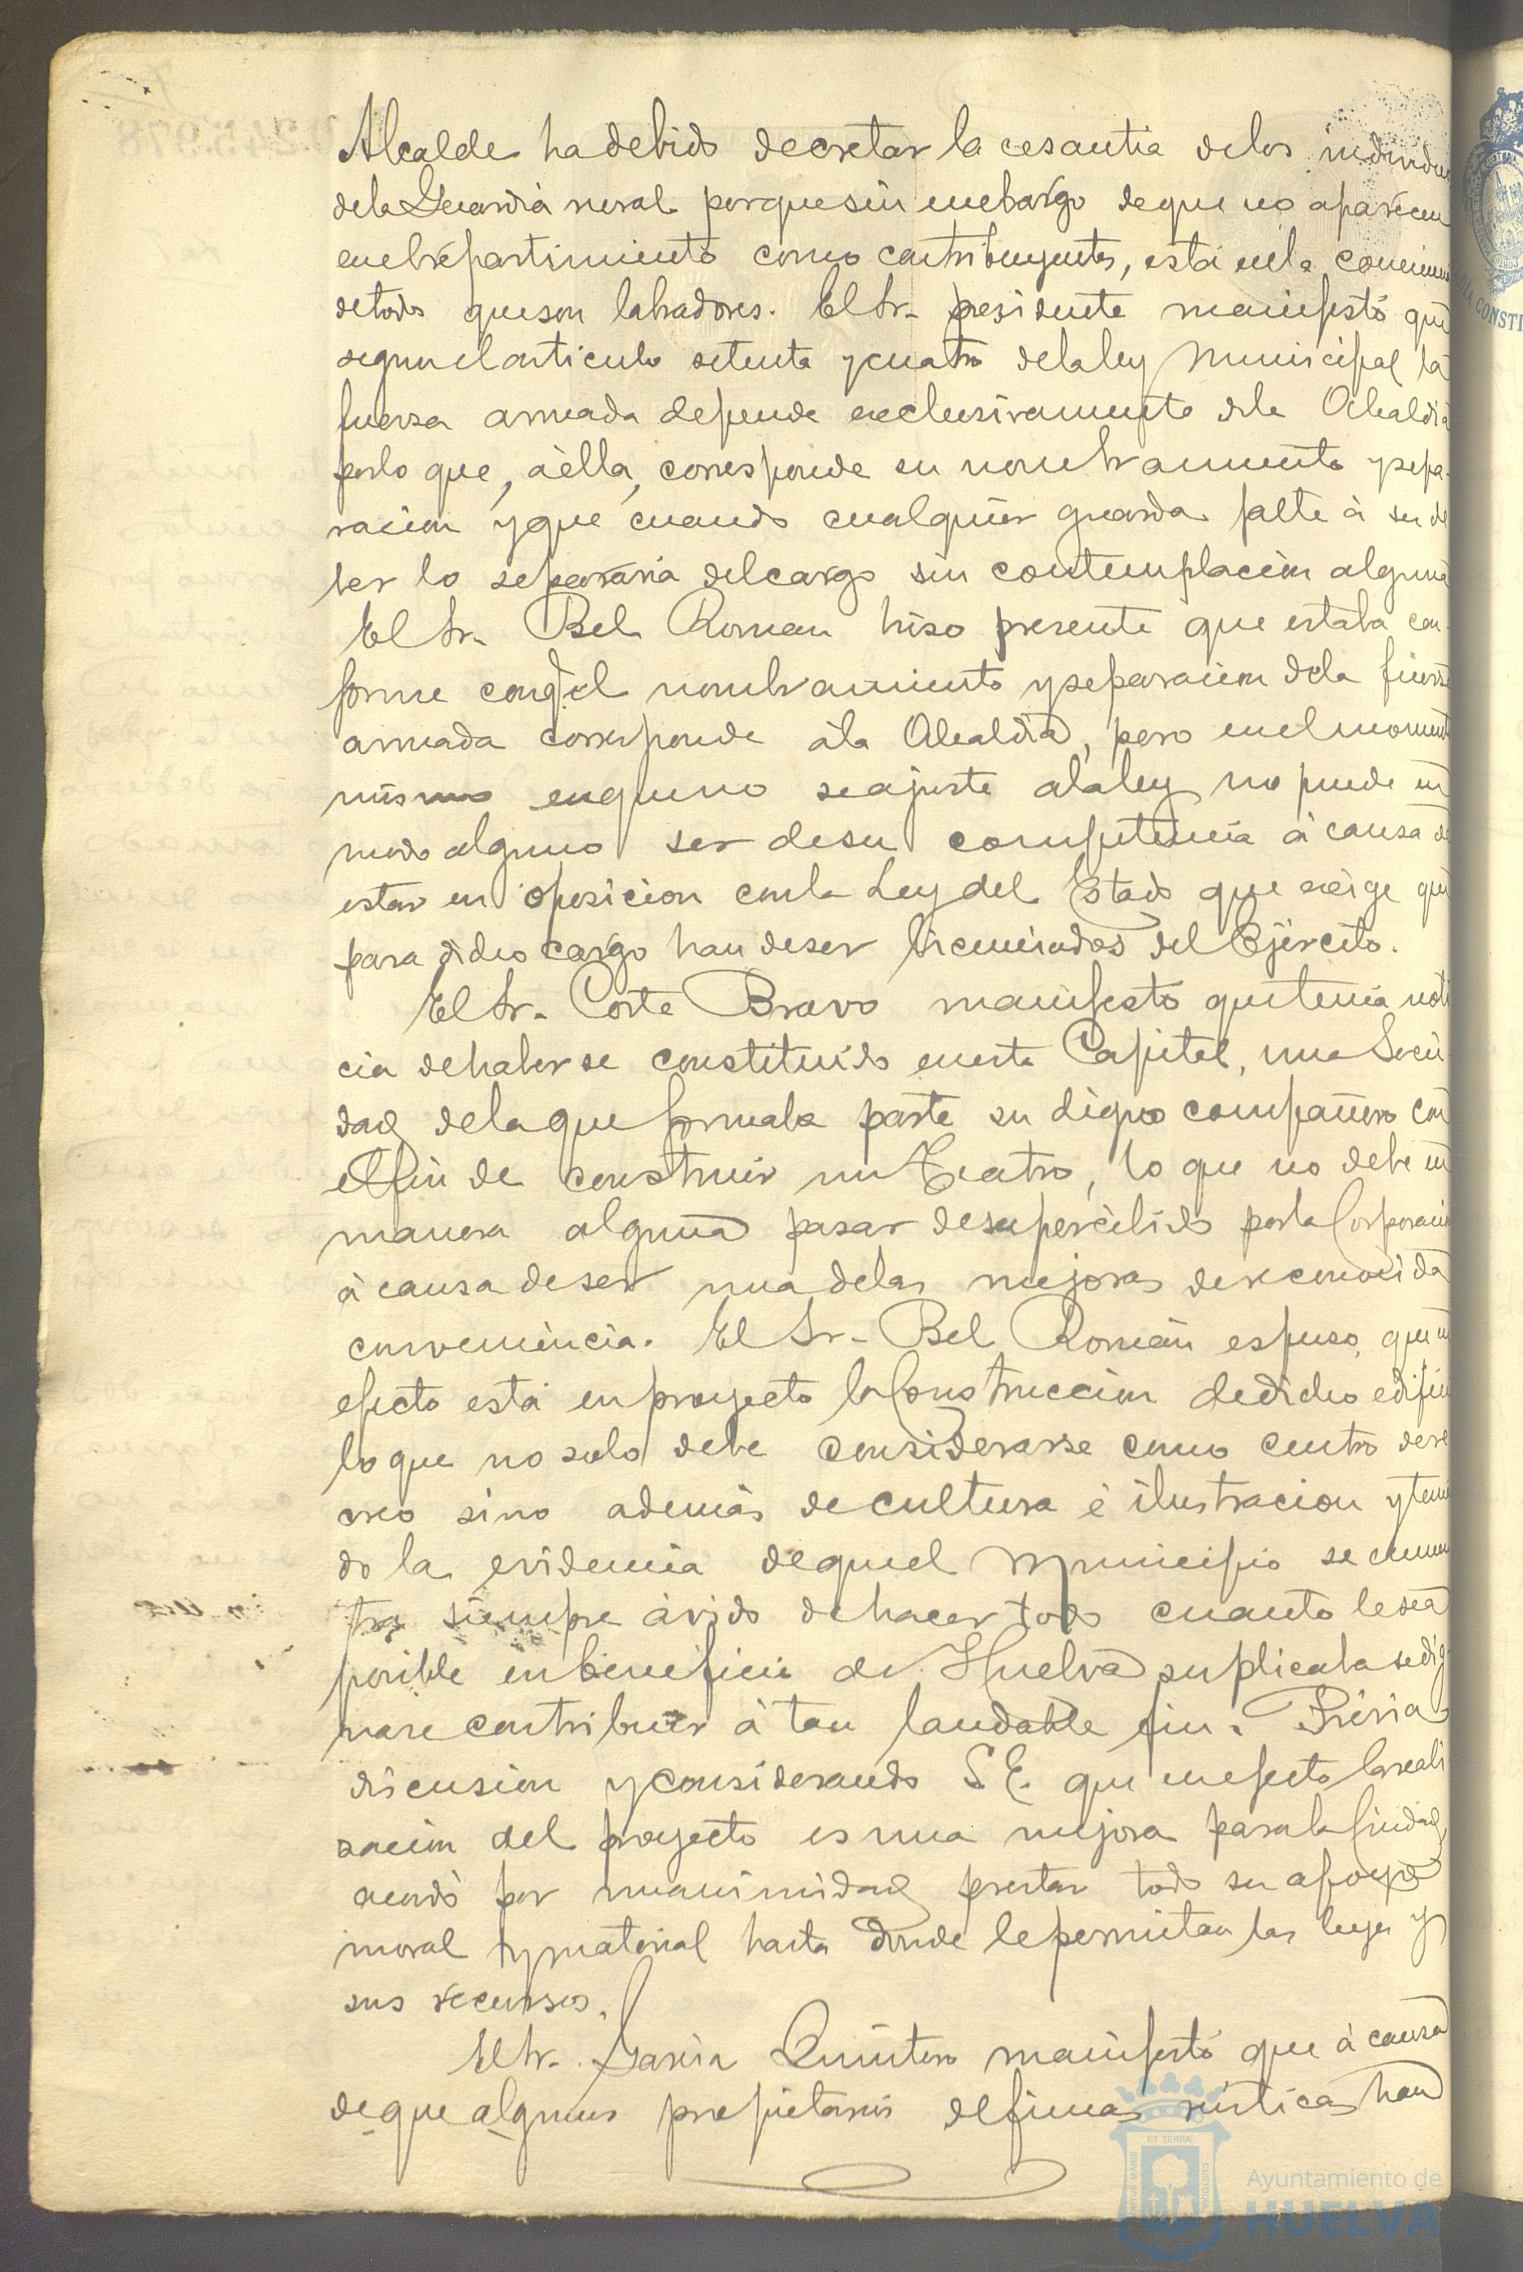 Alcalde ha debido decretar la cesantia de los individuos
dela Guardia rural porque sin embargo de que no aparecen
en el repartimiento como contribuyentes, está en la conciencia
de todos que son labradores. El Sr. presidente manifestó que
segun el articulo setenta y cuatro dela ley Municipal la
fuersa armada depende exclusivamente dela Alcaldia
por lo que, à ella, corresponde su nombramiento y sepa-
racion y que cuando cualquier guarda falte à su de
ber lo separaria del cargo sin contemplacion alguna
El Sr. Bel Roman hiso presente que estaba con-
forme con q. el nombramiento y separacion dela fuersa
armada corresponde à la Alcaldia, pero en el momento
mismo en que no se ajuste ala ley no puede en
modo alguno ser de su competencia à causa de
estar en oposicion con la Ley del Estado que exige que
para dicho cargo han de ser licenciados del Ejército.
El Sr. Corte Bravo manifestó que tenia noti
cia de haberse constituido en esta Capital, una Socie
dad dela que formaba parte su digno compañero con
el fin de construir un Teatro, lo que no debe en
manera alguna pasar desapercibido por la Corporacion
à causa de ser una delas mejoras de reconocida
conveniencia. El Sr. Bel Román espuso, que en
efecto está en proyecto la Construccion de dicho edificio
lo que no solo debe considerarse como centro de re
creo sino además de cultura é ilustracion y tenien
do la evidencia de que el Municipio se encuen
tra siempre ávido de hacer todo cuanto le sea
posible en beneficio de Huelva suplicaba se dig
nase contribuir à tan laudable fin. Prévia
discusion y considerando S. E. que en efecto la reali
sacion del proyecto es una mejora para la Ciudad,
acordó por unanimidad prestar todo su apoyo
moral y material hasta donde le permitan las leyes y
sus recursos.
El Sr. Garcia Quintero manifestó que à causa
de que algunos propietarios de fincas rústicas han
ET TERRÆ
Ayuntamiento de
HUELVA